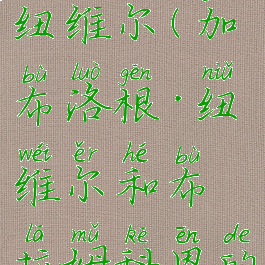 纽维尔(加
bù luò gēn niǔ
布洛根·纽
wéi ěr hé bù
维尔和布
lā mǔ kè ēn de
拉姆科恩的